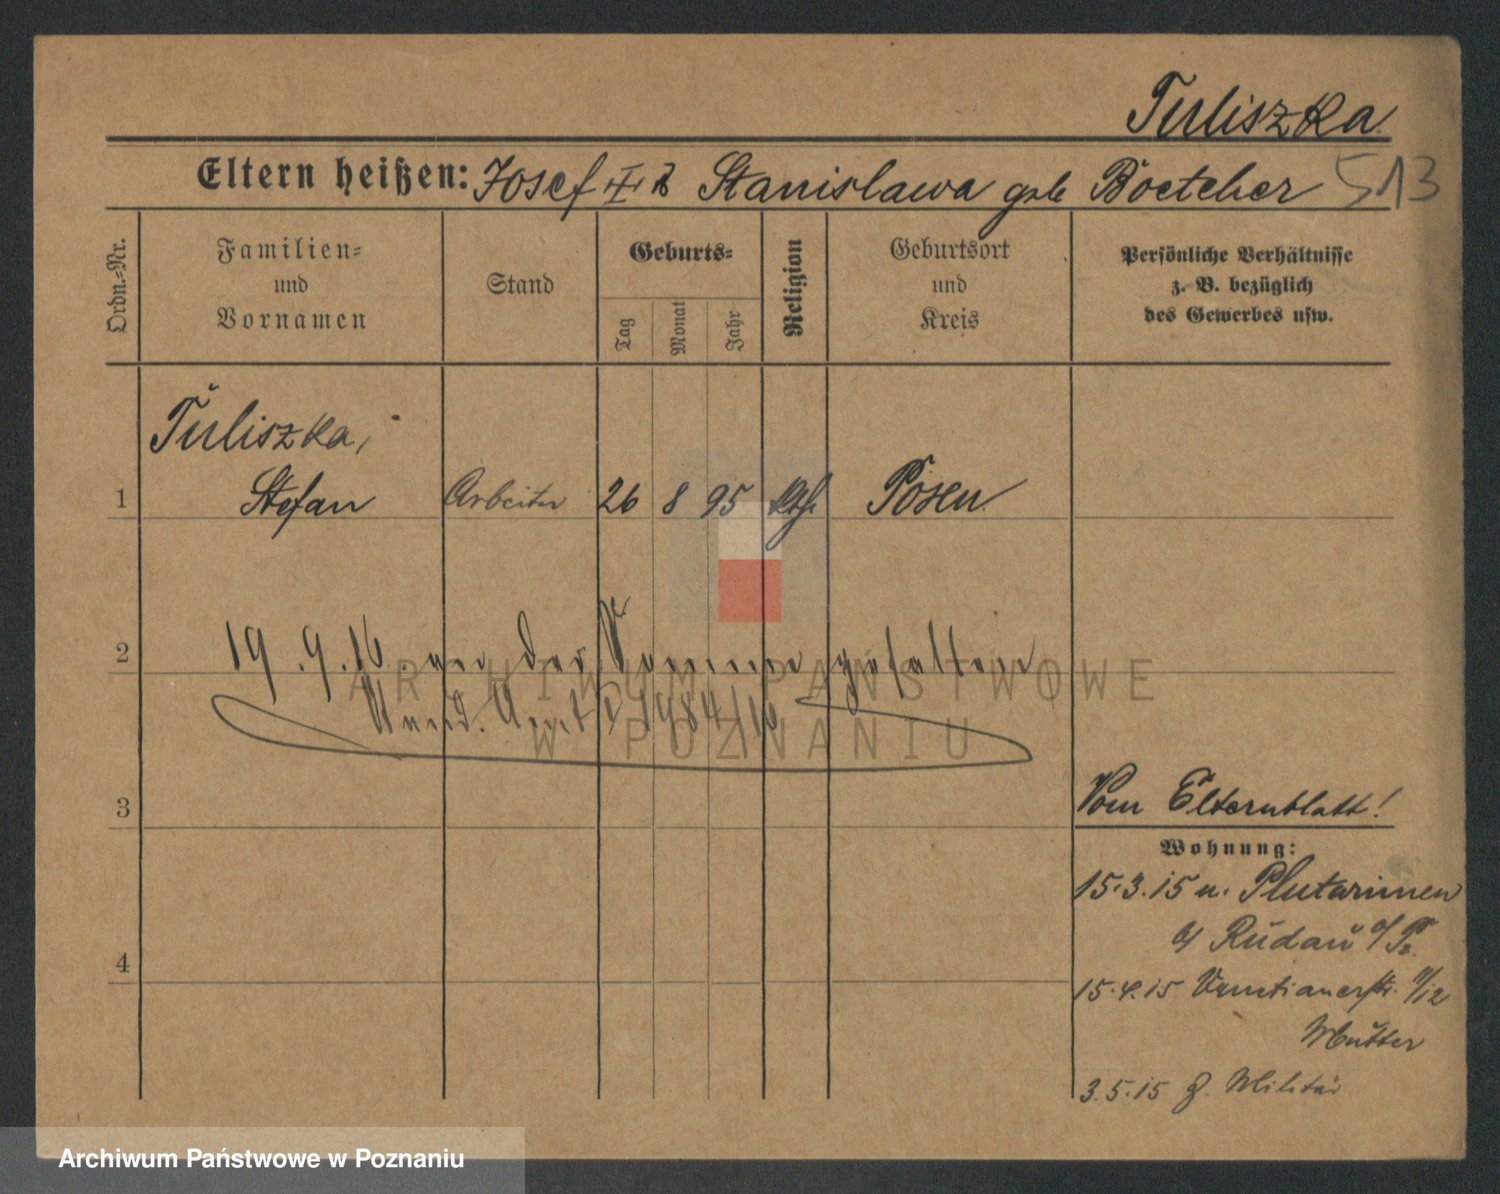 Tuliszka
Eltern heißen: Josef Stanislawa geb Böetcher 513
Ordn.-Nr.
Familien-
und
Vornamen
Stand
Geburts-
Tag
Monat
Jahr
Religion
Geburtsort
und
Kreis
Persönliche Verhältnisse
z. B. bezüglich
des Gewerbes usw.
Tuliszka,
1 Stefan Arbeiter 26 8 95 kth. Posen
2 19.9.16. an der Somme gefallen
1984/16
3
Vom Elternblatt!
Wohnung:
15.3.15 n. Plutawinnen
b/ Rudau o/Pr.
4
15.4.15 Venetianerstr. 11/12
Mutter
3.5.15 z. Militär
ARCHIWUM PAŃSTWOWE
W POZNANIU
Archiwum Państwowe w Poznaniu